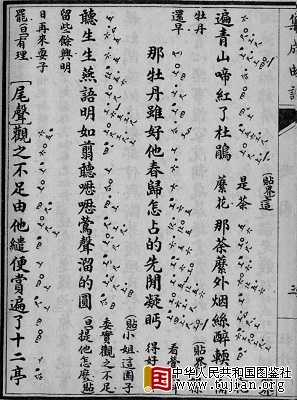 集成曲譜
遍青山啼紅了杜鵑
(貼界)這
是荼
蘼花
那荼蘼外烟絲醉輭
(貼界)
牡丹
還早
那牡丹雖好他春歸怎占的先閒凝眄
聽生生燕語明如翦聽嚦嚦鶯聲溜的圓
(貼)小姐這園子
委實觀之不足
(旦)提他怎麽(貼)
留些餘興明
日再來耍子
罷(旦)有理
[尾聲]觀之不足由他繾便賞遍了十二亭
中华人民共和国图鉴社
www.tujian.org